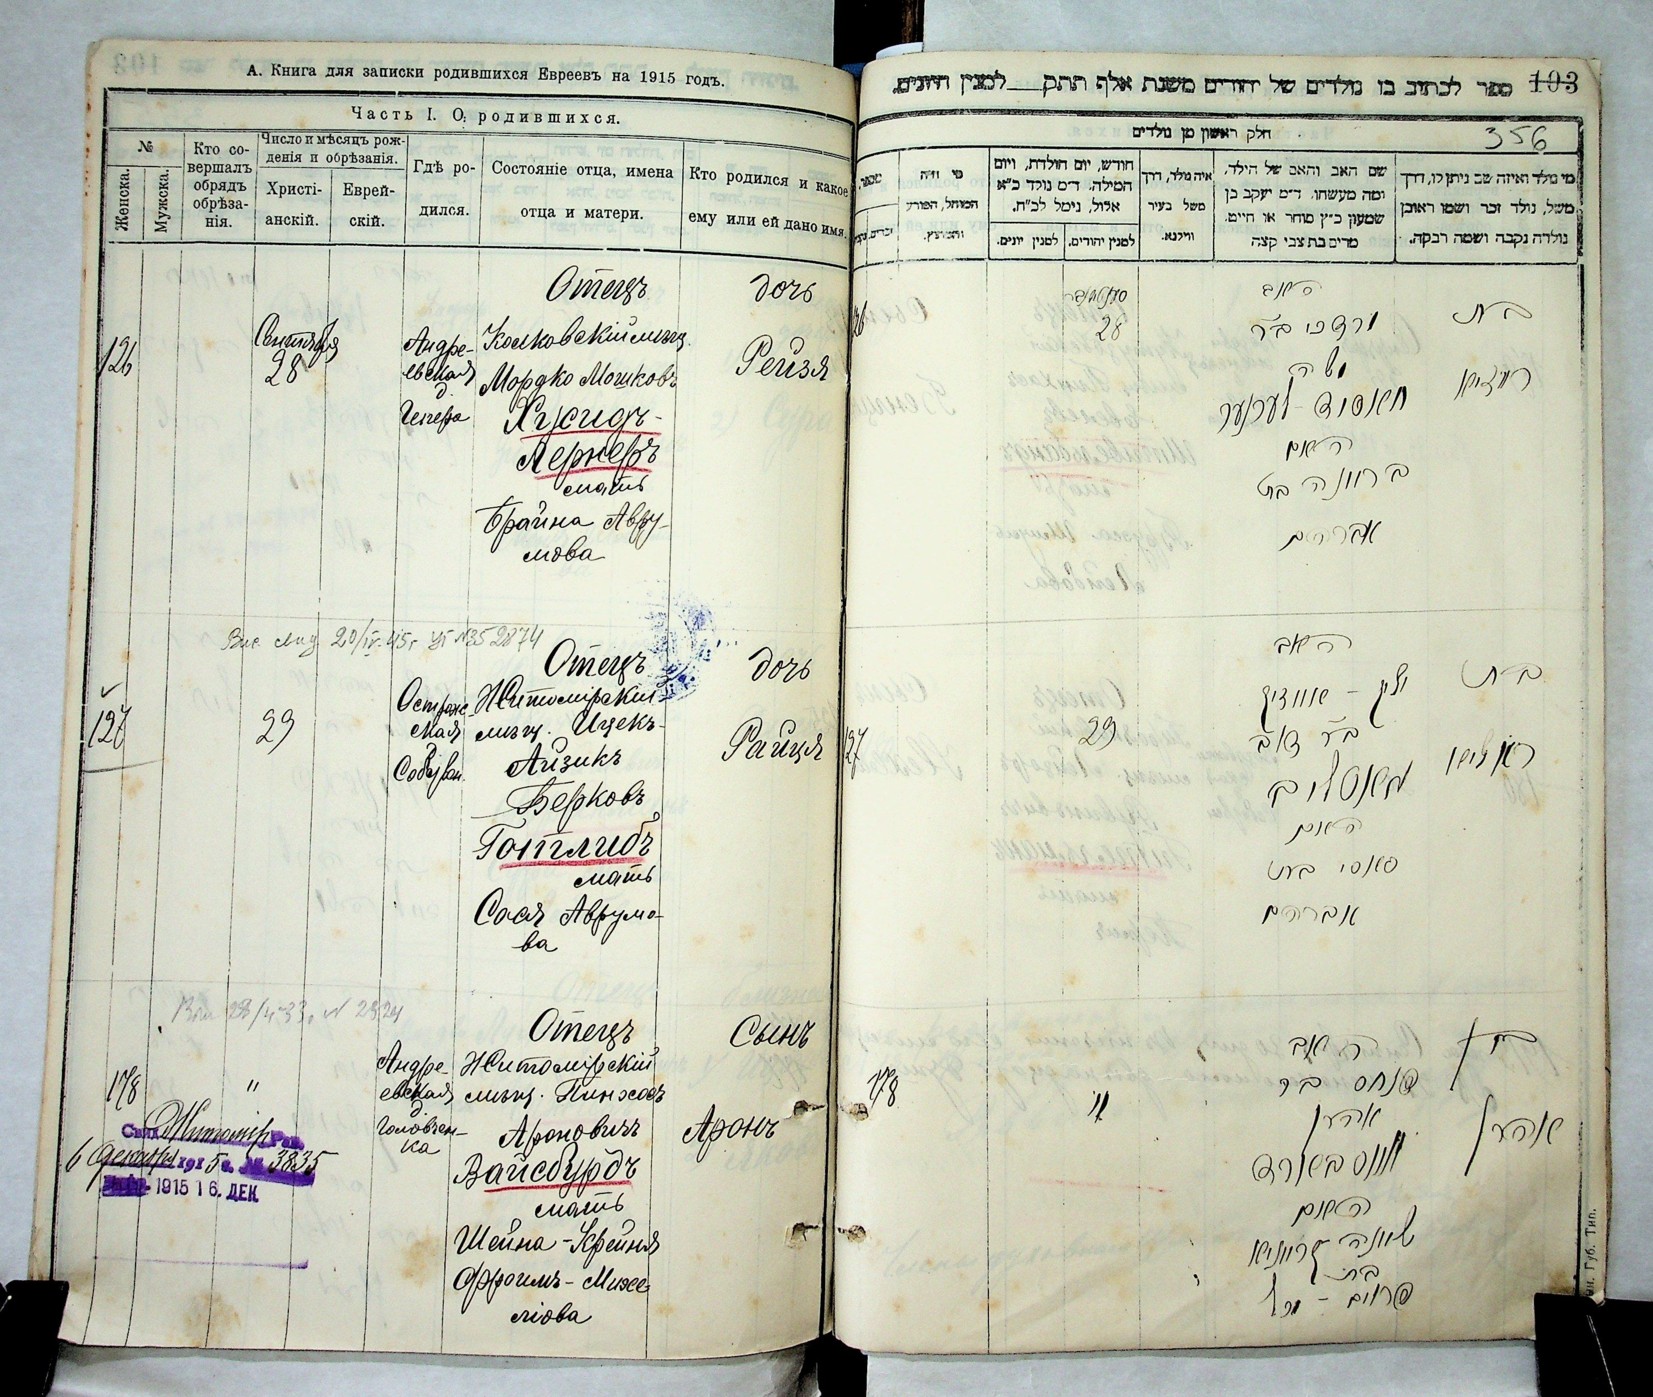 А. Книга для записки родившихся Евреевъ на 1915 годъ.
Часть I. О родившихся.
№
Женска.
Мужска.
Кто со-
вершалъ
обрядъ
обрѣза-
нія.
Число и мѣсяцъ рож-
денія и обрѣзанія.
Христі-
анскій.
Еврей-
скій.
Гдѣ ро-
дился.
Состояніе отца, имена
отца и матери.
Кто родился и какое
ему или ей дано имя.
126
Сентября
28
Андре-
евская
д.
Отецъ
Колковскій мѣщ.
Мордко Мошковъ
Хусидъ-
Лернеръ
мать
Брайна Авру-
мова
дочь
Рейзя
20/IV-45г
127
29
Отецъ
Житомірскій
мѣщ. Ицекъ-
Айзикъ
Берковъ
Готлибъ
мать
Сося Аврумо-
ва
дочь
Райця
178
"
Андре-
евская
Отецъ
Житомірскій
мѣщ. Пинхосъ
Ароновичъ
Вайсбурдъ
мать
Шейна-Крейня
Фроимъ-Михе-
лiова
Сынъ
Аронъ
Житомір Рав.
6 декабря 1915 г. № 3835
1915 16. ДЕК.
ספר לכתוב בו נולדים של יהודים משנת אלף תתק למנין היונים.
103
חלק ראשון מן נולדים
356
מי נולד ואיזה שם ניתן לו, דרך
משל, נולד זכר ושמו ראובן
נולדה נקבה ושמה רבקה.
שם האב והאם של הילד,
ומה מעשהו. ד״מ יעקב בן
שמעון כ״ץ סוחר או חייט.
מרים בת צבי קצה
איה נולד, דרך
משל בעיר
ווילנא.
חודש, יום הולדת, ויום
המילה. ד״מ נולד כ״א
אלול, נימל לכ״ח.
למנין יהודים.
למנין יונים.
מי היה
המוהל, הפורע
והמוצץ.
28
האב
מרדכי ב״ר
משה
חאסיד-לערנער
האם
בריינה בת
אברהם
בת
רייזיא
127
29
האב
איציק-אייזיק
ב״ר דוב
גאטליב
האם
סאסי בת
אברהם
בת
ראיציא
178
"
האב
פנחס ב״ר
אהרן
ווייסבורד
האם
שיינה קריינא
בת
בן
אהרן